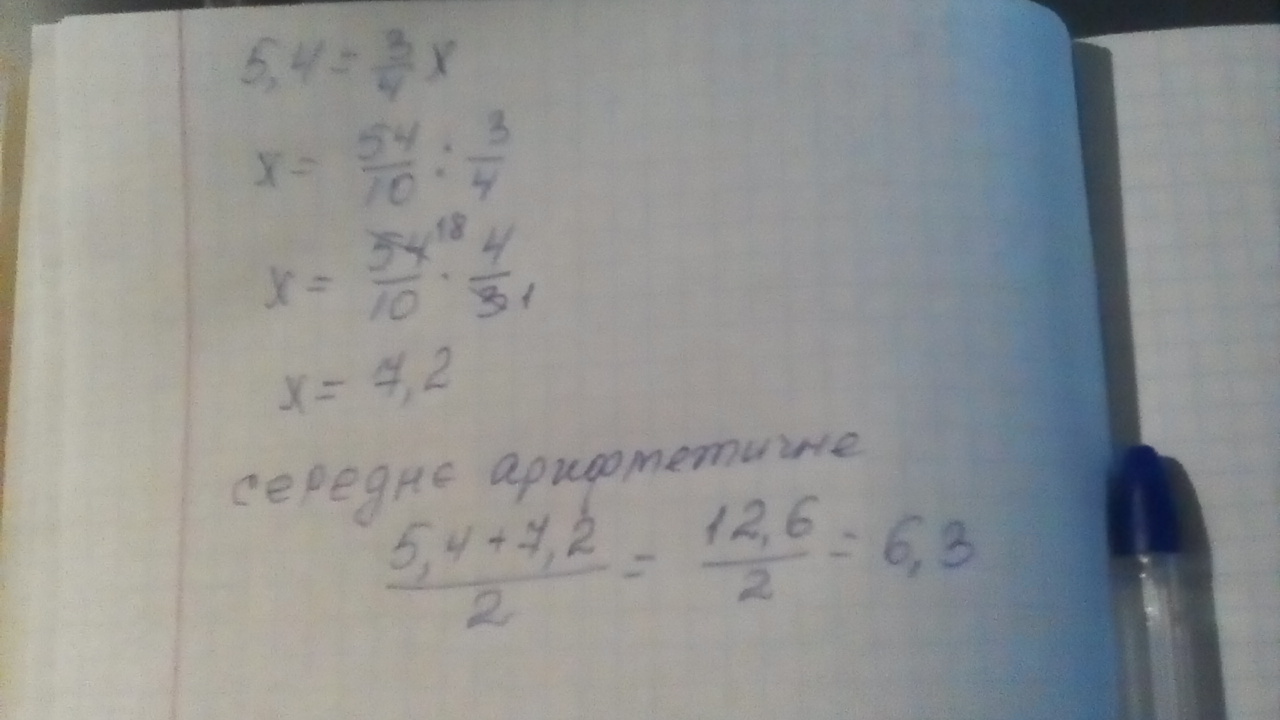 5,4 = 3/4 x
x = 54/10 : 3/4
x = 54/10 18 · 4/3 1
x = 7,2
середнє арифметичне
5,4+7,2/2 = 12,6/2 = 6,3